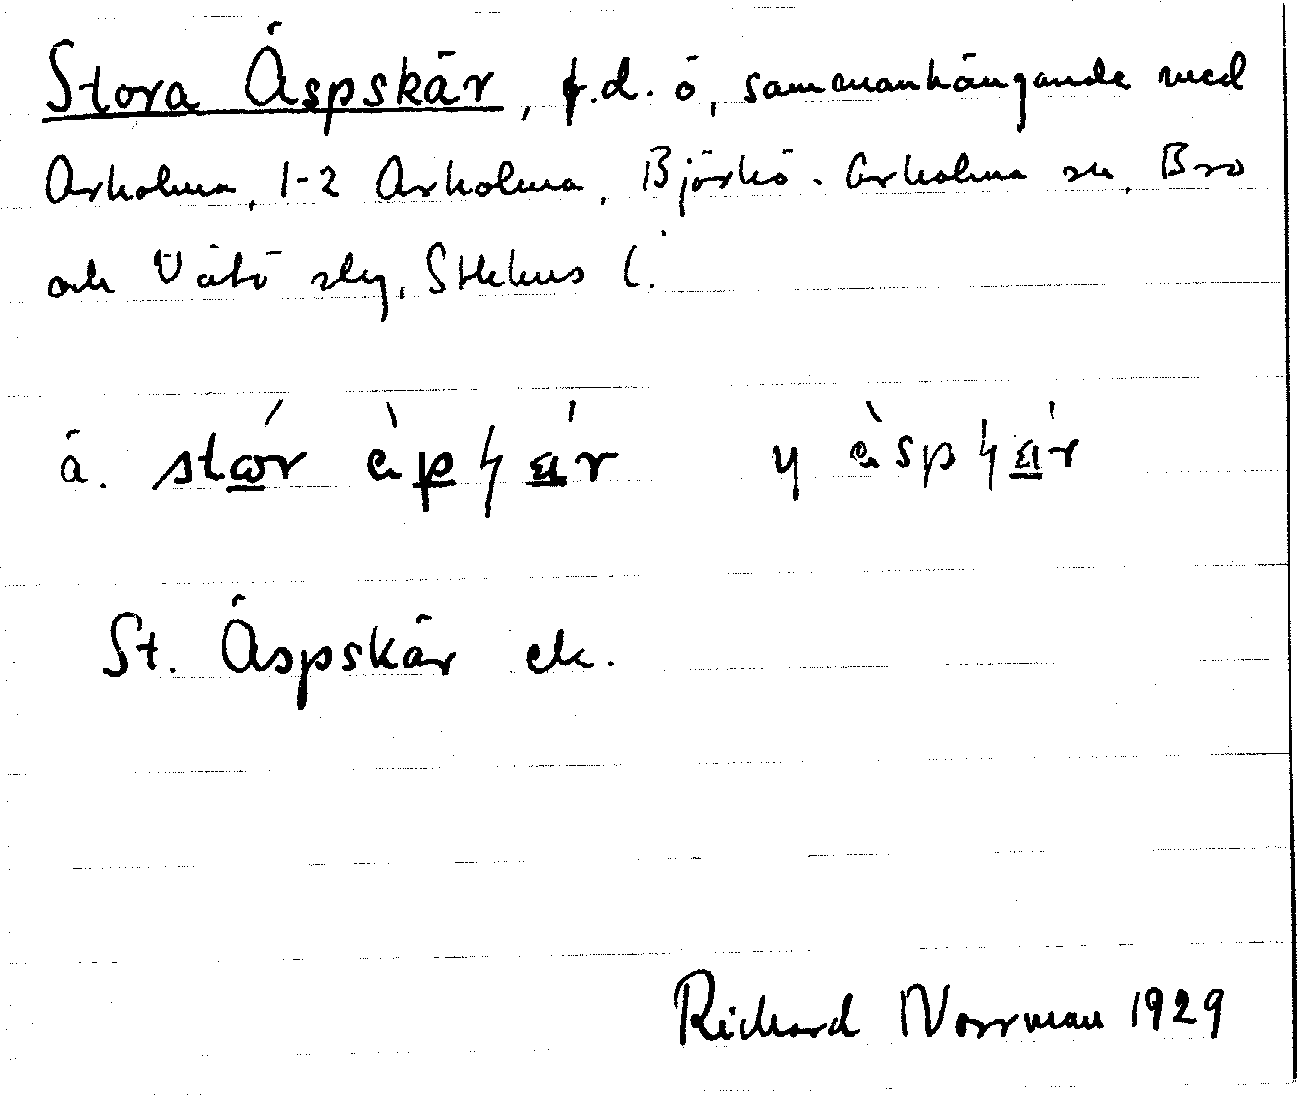 Stora Äspskär, f.d. ö, sammanhängande med
Arholma, 1-2 Arholma, Björkö-Arholma sn, Bro
och Vätö slg, Sthlms l.
ä.
y
St. Äspskär ek.
Richard Norrman 1929